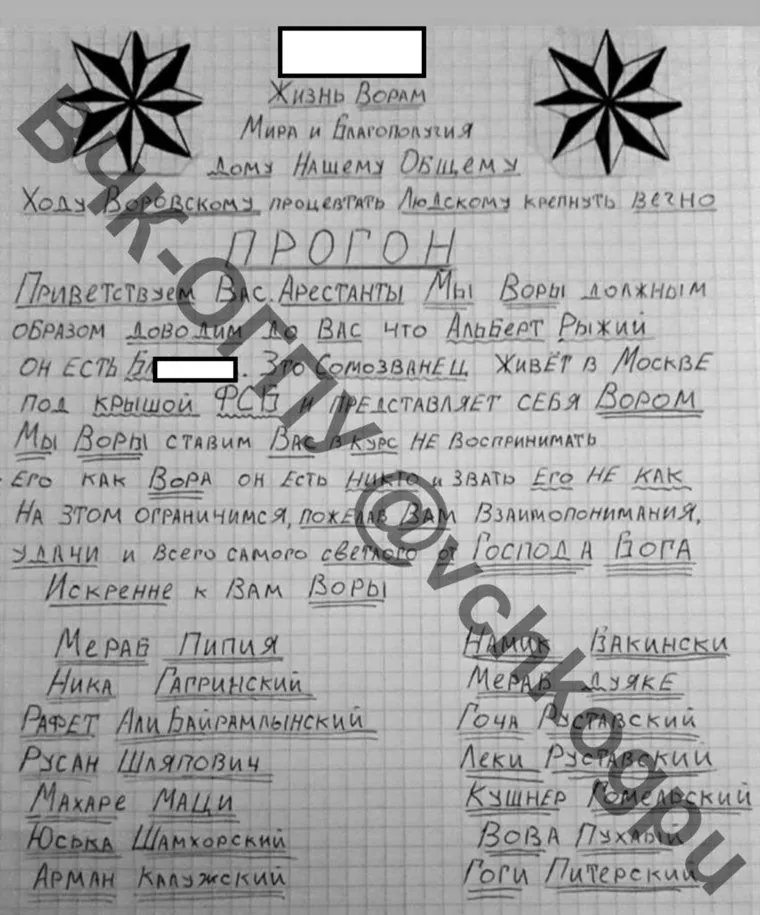 Жизнь Ворам
Мира и Благополучия
Дому Нашему Общему
Ходу Воровскому процветать Людскому крепнуть вечно
ПРОГОН
Приветствуем Вас. Арестанты Мы Воры должным
образом доводим до Вас что Альберт Рыжий
он есть Бл . Это Сомозванец живёт в Москве
под крышой ФСБ и представляет себя Вором
Мы Воры ставим Вас в курс не воспринимать
его как Вора он есть никто и звать Его не как
На этом ограничимся, пожелав Вам Взаимопонимания,
удачи и всего самого светлого от Господа Бога
Искренне к Вам Воры
Мераб Пипия
Ника Гагринский
Рафет Али Байрамлынский
Русан Шляпович
Махаре Маци
Юська Шамхорский
Арман Калужский
Намик Бакински
Мераб Дуяке
Гоча Руставский
Леки Руставский
Кушнер Гомельский
Вова Пухлый
Гоги Питерский
ВЧК-ОГПУ @vchkogpu